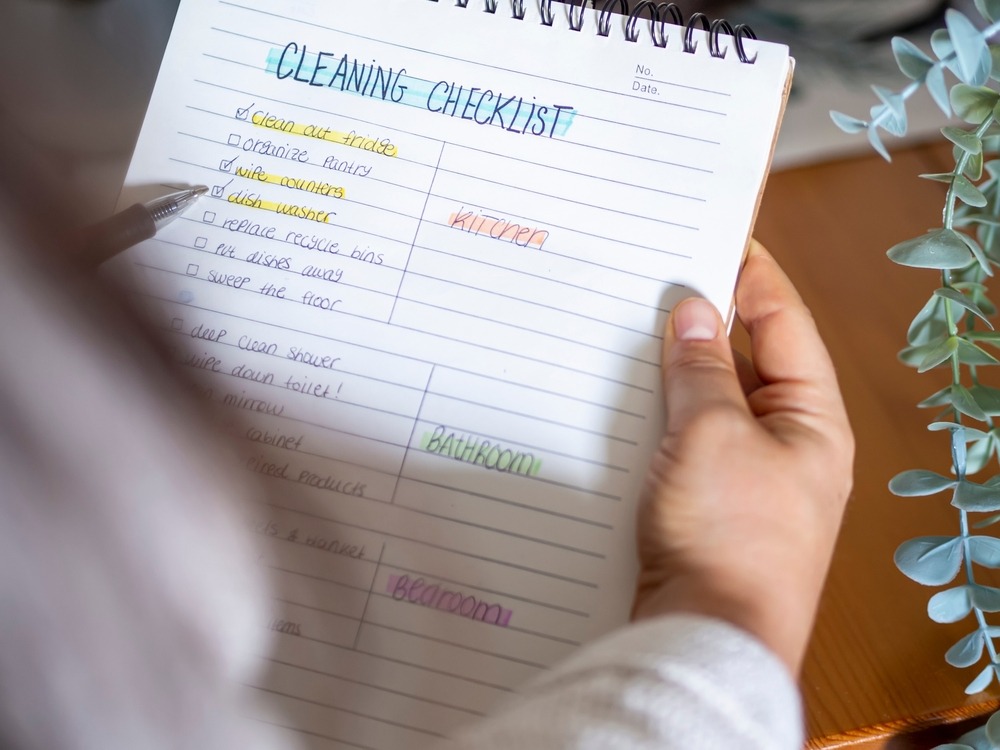 No.
Date.
CLEANING CHECKLIST
clean out fridge
organize pantry
wipe counters
dish washer
replace recycle bins
put dishes away
sweep the floor
KITCHEN
deep clean shower
wipe down toilet!
mirrow
cabinet
products
BATHROOM
& blanket
Bedroom